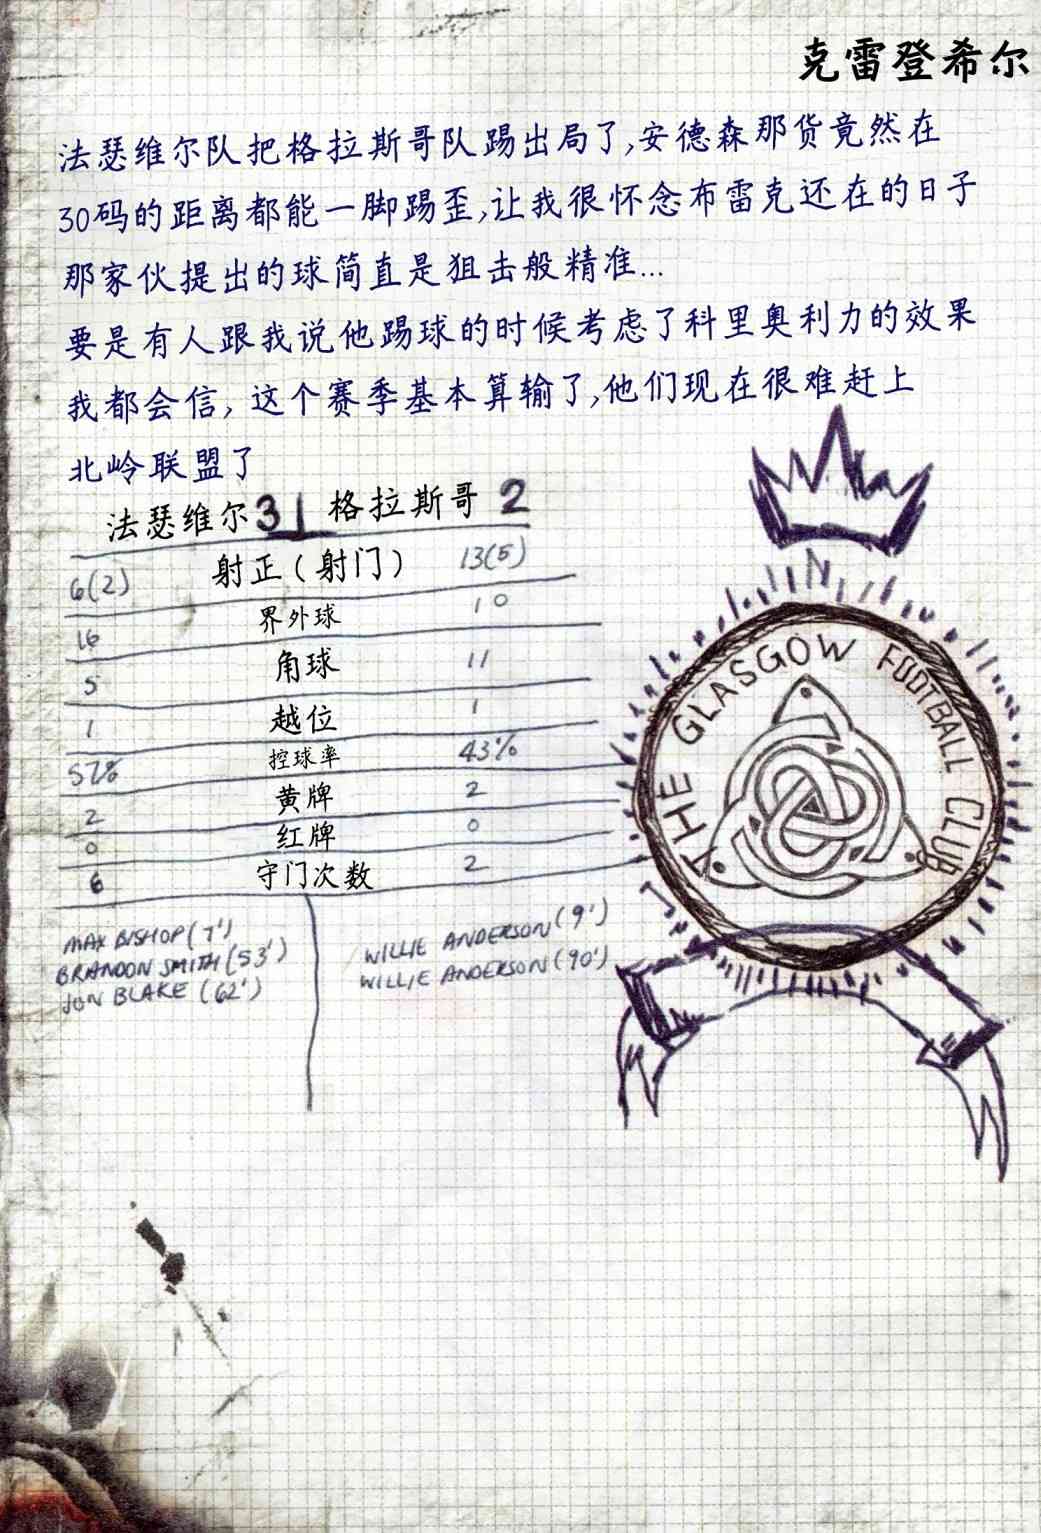 克雷登希尔
法瑟维尔队把格拉斯哥队踢出局了,安德森那货竟然在
30码的距离都能一脚踢歪,让我很怀念布雷克还在的日子
那家伙提出的球简直是狙击般精准...
要是有人跟我说他踢球的时候考虑了科里奥利力的效果
我都会信, 这个赛季基本算输了,他们现在很难赶上
北岭联盟了
法瑟维尔 3 | 格拉斯哥 2
6(2) 射正(射门) 13(5)
16 界外球 10
5 角球 11
1 越位 1
57% 控球率 43%
2 黄牌 2
0 红牌 0
6 守门次数 2
MAX BISHOP (7')
BRANDON SMITH (53')
JON BLAKE (62')
WILLIE ANDERSON (9')
WILLIE ANDERSON (90')
THE GLASGOW FOOTBALL CLUB